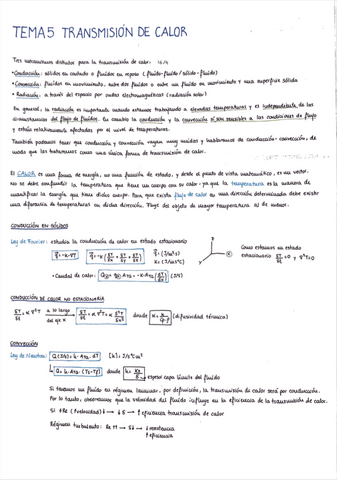 TEMA 5 TRANSMISIÓN DE CALOR
Tres mecanismos distintos para la transmisión de calor:
• Conducción: sólidos en contacto o fluidos en reposo (fluido-fluido / sólido-fluido)
• Convección: fluidos en movimiento, entre dos fluidos o entre un fluido en movimiento y una superficie sólida
• Radiación: a través del espacio por ondas electromagnéticas (radiación solar)
En general, la radiación es importante cuando estamos trabajando a elevadas temperaturas y es independiente de las
circunstancias del flujo de fluidos. En cambio la conducción y la convección sí son sensibles a las condiciones de flujo
y están relativamente afectadas por el nivel de temperaturas.
También podemos tener que conducción y convección vayan muy unidas y hablaremos de conducción-convección, de
modo que las trataremos como una única forma de transmisión de calor.
El CALOR es una forma de energía, no una función de estado, y desde el punto de vista matemático, es un vector.
No se debe confundir la temperatura que tiene un cuerpo con su calor, ya que la temperatura es la manera de
cuantificar la energía que tiene dicho cuerpo. Para que exista flujo de calor en una dirección determinada debe existir
una diferencia de temperaturas en dicha dirección. Fluye del objeto de mayor temperatura al de menor.
CONDUCCIÓN EN SÓLIDOS
Ley de Fourier: estudia la conducción de calor en estado estacionario
Como estamos en estado
estacionario
• Caudal de calor:
CONDUCCIÓN DE CALOR NO ESTACIONARIA
a lo largo
del eje x
donde
(difusividad térmica)
CONVECCIÓN
Ley de Newton:
donde
espesor capa límite del fluido
Si tenemos un fluido en régimen laminar, por definición, la transmisión de calor será por conducción.
Por lo tanto, observamos que la velocidad del fluido influye en la eficiencia de la transmisión de calor.
Si ↑Re (↑velocidad) → ↓δ → ↑ eficiencia transmisión de calor
Régimen turbulento: Re ↑↑ → δ↓ → ↓ resistencia
↑ eficiencia